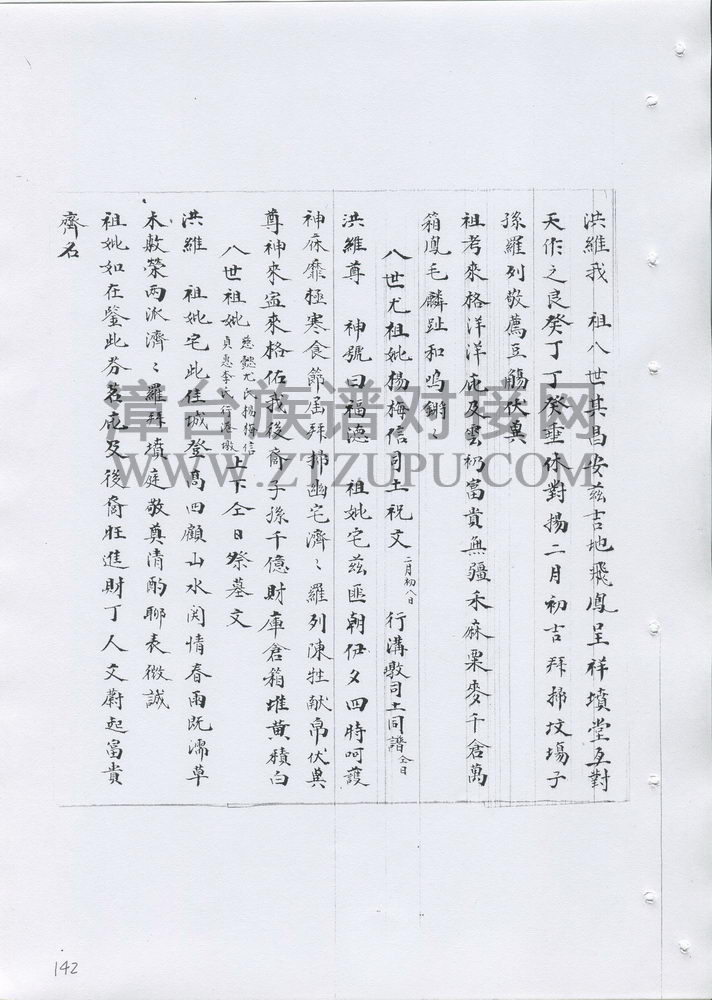 洪維我　祖八世其昌安茲吉地飛鳳呈祥墳堂互對
天作之良癸丁丁癸垂休對揚二月初吉拜掃墳塲子
孫羅列敬薦豆觴伏冀
祖考來格洋洋庇及雲礽富貴無疆禾麻粟麥千倉萬
箱鳳毛麟趾和鳴鏘ミ
八世尤祖妣楊梅信司土祝文 二月初八日 行溝墩司土同譜 仝日
洪維尊　神號曰福德　祖妣宅茲匪朝伊夕四時呵護
神庥靡極寒食節屆拜掃幽宅濟ミ羅列陳牲献帛伏冀
尊神來宓來格佑我後裔子孫千億財庫倉箱堆黄積白
八世祖妣 慈懿尤氏楊梅信 貞惠李氏行港墩 上下仝日祭墓文
洪維　祖妣宅此佳城登高四顧山水関情春雨既濡草
木敷榮两派濟ミ羅拜墳庭敬奠清酌聊表微誠
祖妣如在鑒此芬茗庇及後裔旺進財丁人文蔚起富貴
齊名
142
漳台族谱对接网
WWW.ZTZUPU.COM